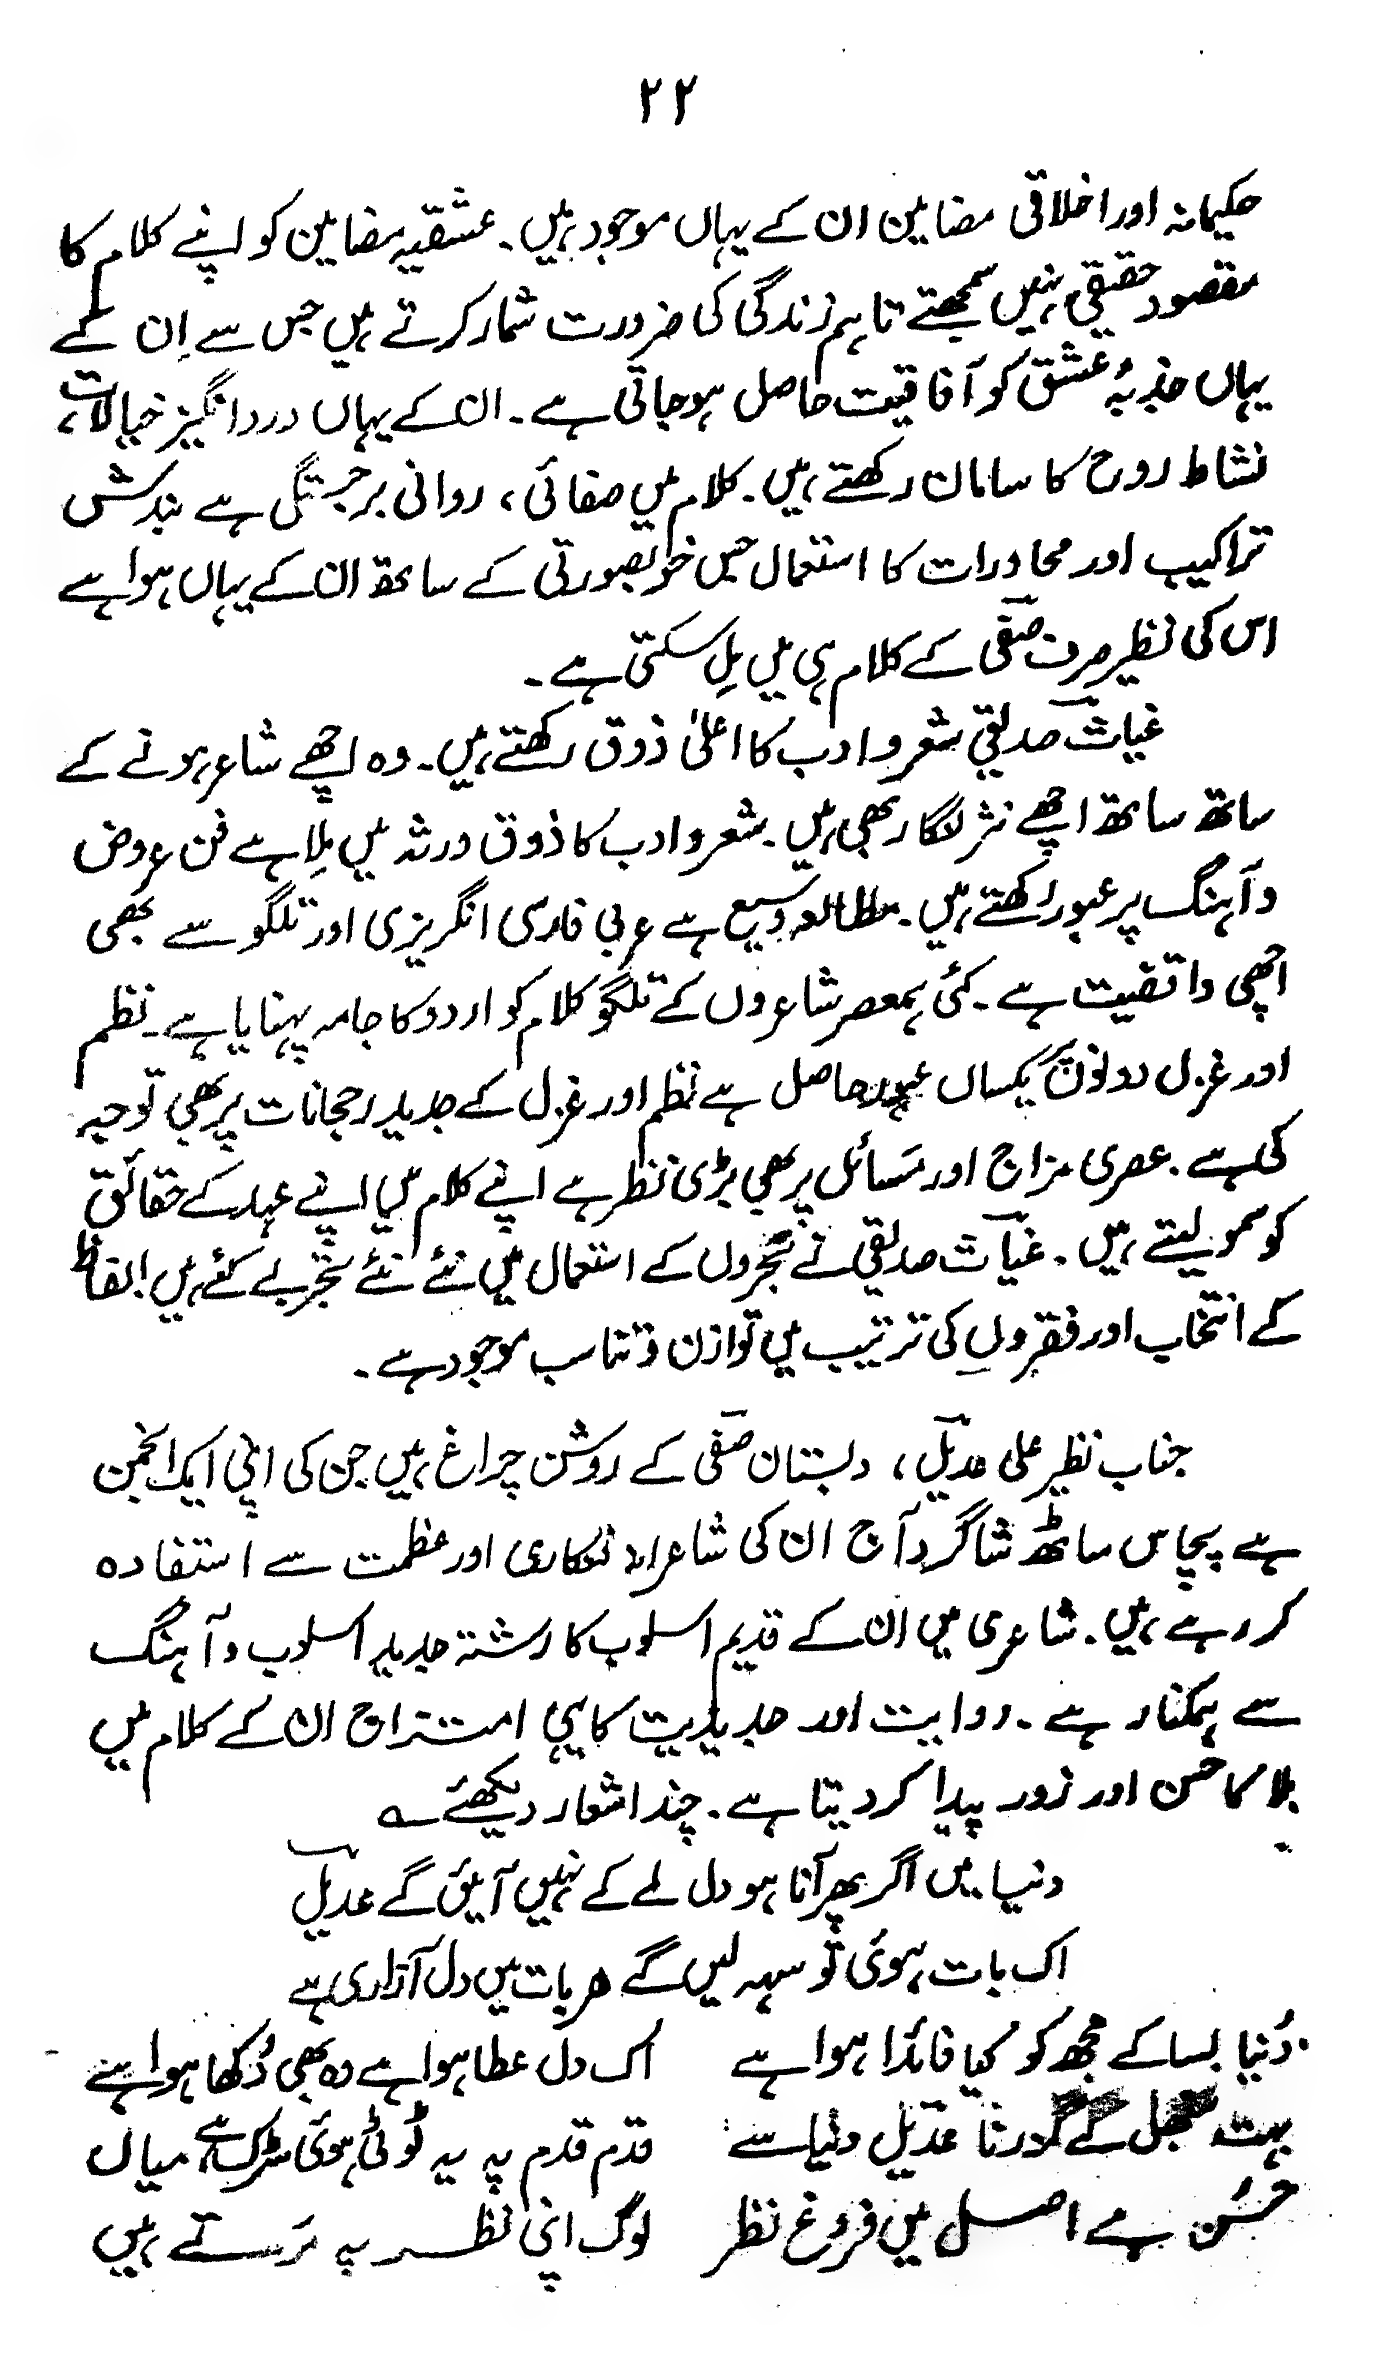 ۲۲
حکیمانہ اور اخلاقی مضامین ان کے یہاں موجود ہیں۔ عشقیہ مضامین کو اپنے کلام کا
مقصود حقیقی نہیں سمجھتے تاہم زندگی کی ضرورت شمار کرتے ہیں جس سے اِن کے
یہاں جذبۂ عشق کو آفاقیت حاصل ہو جاتی ہے۔ ان کے یہاں درد انگیز خیالات،
نشاط روح کا سامان رکھتے ہیں۔ کلام میں صفائی، روانی برجستگی ہے بندش
تراکیب اور محاورات کا استعمال جس خوبصورتی کے ساتھ ان کے یہاں ہوا ہے
اس کی نظیر صرف صفیؔ کے کلام ہی میں مِل سکتی ہے۔
غیاثؔ صدیقی شعر و ادب کا اعلیٰ ذوق رکھتے ہیں۔ وہ اچھے شاعر ہونے کے
ساتھ ساتھ اچھے نثر نگار بھی ہیں۔ شعر و ادب کا ذوق ورثہ میں مِلا ہے فن عروض
و آہنگ پر عبور رکھتے ہیں۔ مطالعہ وسیع ہے عربی فارسی انگریزی اور تلگو سے بھی
اچھی واقفیت ہے۔ کئی ہمعصر شاعروں کے تلگو کلام کو اردو کا جامہ پہنایا ہے۔ نظم
اور غزل دونوں پر یکساں عبور حاصل ہے نظم اور غزل کے جدید رجحانات پر بھی توجہ
کی ہے۔ عصری مزاج اور مسائل پر بھی بڑی نظر ہے اپنے کلام میں اپنے عہد کے حقائق
کو سمو لیتے ہیں۔ غیاثؔ صدیقی نے بحروں کے استعمال میں نئے نئے تجربے کئے ہیں الفاظ
کے انتخاب اور فقروں کی ترتیب میں توازن و تناسب موجود ہے۔
جناب نظیر علی عدیلؔ، دبستان صفیؔ کے روشن چراغ ہیں جن کی اپنی ایک انجمن
ہے پچاس ساٹھ شاگرد آج ان کی شاعرانہ فنکاری اور عظمت سے استفادہ
کر رہے ہیں۔ شاعری میں ان کے قدیم اسلوب کا رشتہ جدید اسلوب و آہنگ
سے ہمکنار ہے۔ روایت اور جدیدیت کا یہی امتزاج ان کے کلام میں
بلا کا حسن اور زور پیدا کر دیتا ہے۔ چند اشعار دیکھئے ؎
دنیا میں اگر پھر آنا ہو دل لے کے نہیں آئیں گے عدیلؔ
اک بات ہوئی تو سہہ لیں گے ہر بات میں دل آزاری ہے
دُنیا بسا کے مجھ کو کیا فائدا ہوا ہے اک دل عطا ہوا ہے وہ بھی دُکھا ہوا ہے
بہت سنبھل کے گذرنا عدیلؔ دنیا سے قدم قدم پہ یہ ٹوٹی ہوئی سڑک ہے میاں
حُسن ہے اصل میں فروغ نظر لوگ اپنی نظر پہ مرتے ہیں